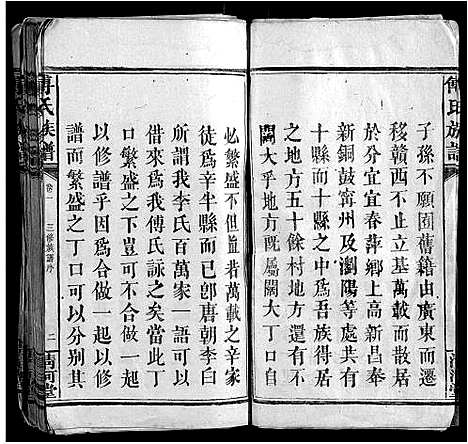 傅氏族譜
子孫不願囿舊籍由廣東而遷
移贛西不止立基萬載而散居
於分宜宜春萍鄉上高新昌奉
新銅鼓甯州及瀏陽等處共有
十縣而十縣之中爲吾族得居
之地方五十餘村地方還有不
闊大乎地方既屬闊大丁口自
必繁盛不但豈若萬載之辛家
徒爲辛半縣而已卽唐朝李白
所謂我李氏百萬家一語可引
來而爲我傅氏詠之矣當此丁
口繁盛之時作一大也一修可
以修譜乎吾因此起一以修
譜而繁盛之丁口可以分別其
傅氏族譜
卷一
三修族譜序
二
清河堂
清河堂